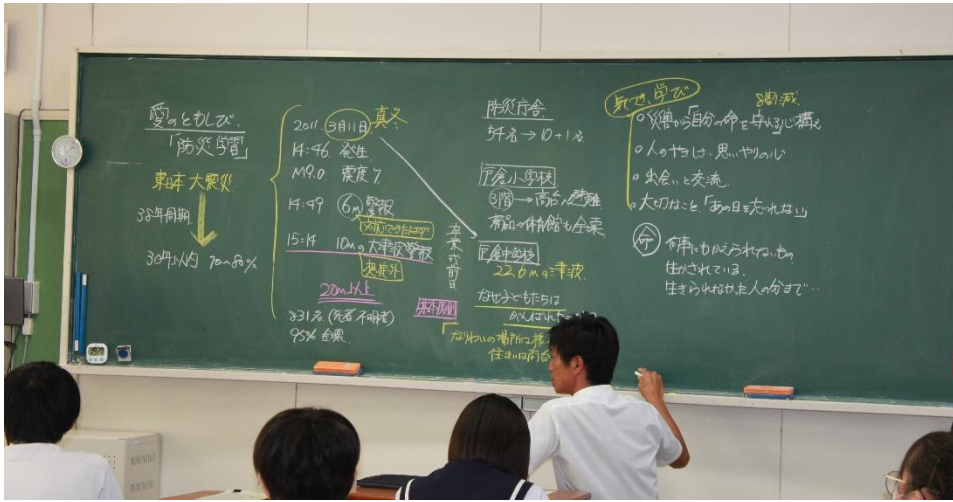 愛のともしび
「防災学習」
東日本大震災
38年周期
30年以内 70~80%
2011. 3月11日 真冬
14:46. 発生.
M9.0. 震度7.
14:49 6m 警報
15:14 10mの大津波警報
想定外
20m以上
831名(死者 不明者)
95% 全壊
卒業式前日
防災庁舎
54名→10+1名.
戸倉小学校
3階→高台へ避難
新品の体育館も全壊
戸倉中学校
22.6mの津波
なぜ子どもたちは
「なりわいの場所は
住まいは高台
気づき、学び
8割減
○災害から「自分の命を守る」心構え
○人のやさしさ、思いやりの心
○出会いと交流
○大切なこと「あの日を忘れない」
命 何事にもかえられないもの
生かされている.
生きられなかった人の分まで…